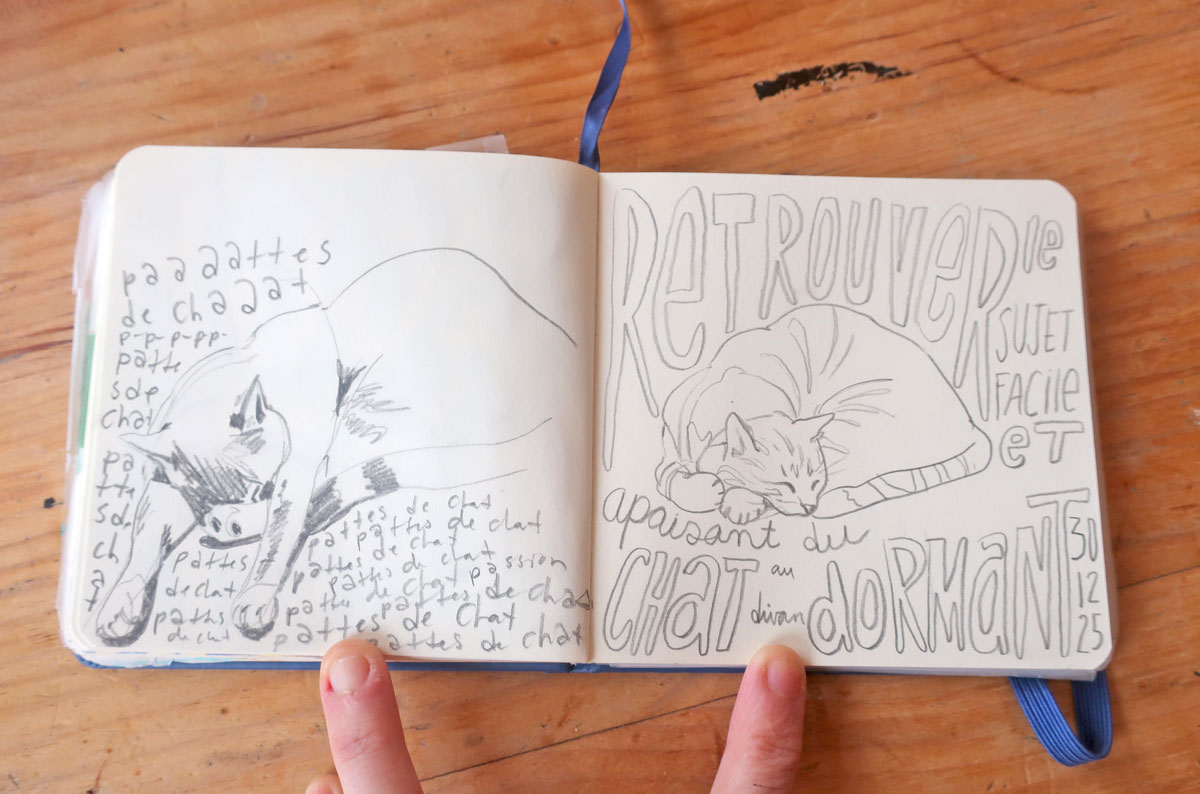 paaaattes
de chaaat
p-p-p-pp-
patte
sde
chat
pa
tte
sde
ch
a
t
pattes
de chat
pattes
de chat
pattes de chat
pattes de chat
de chat
pattes de chat
pattes de chat passion
pattes de chat
pattes de chat
pattes de chat
RETROUVER le
SUJET
FACILE
ET
apaisant du
CHAT au divan DORMANT
30
12
25